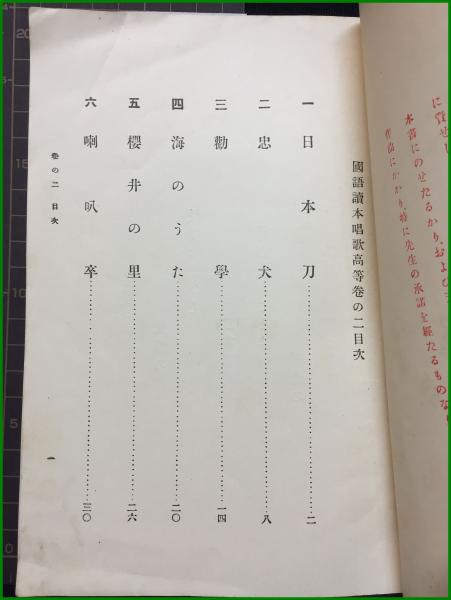 に資せし
本書にのせたるかり、および
作曲にかかり、特に先生の承諾を經たるものな
國語讀本唱歌高等卷の二目次
一 日本刀 二
二 忠犬 八
三 勸學 一四
四 海のうた 二〇
五 櫻井の里 二六
六 喇叭卒 三〇
卷の二 目次
一
20
15
10
5
0